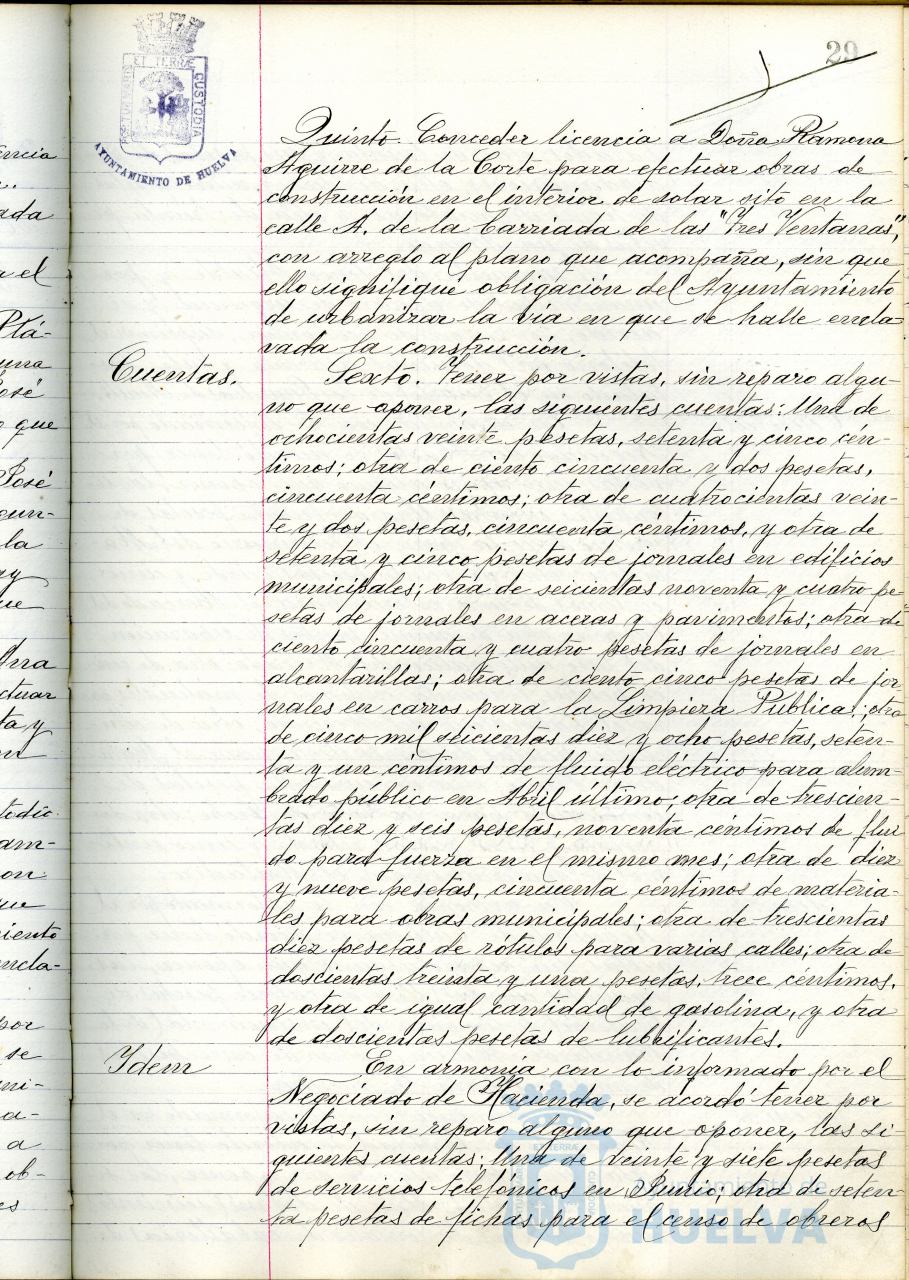 29
PORTUS MARIS ET TERRÆ CUSTODIA
AYUNTAMIENTO DE HUELVA
Quinto. Conceder licencia a Doña Ramona
Aguirre de la Corte para efectuar obras de
construcción en el interior de solar sito en la
calle A. de la barriada de las "Tres Ventanas",
con arreglo al plano que acompaña, sin que
ello signifique obligación del Ayuntamiento
de urbanizar la via en que se halle encla-
vada la construcción.
Cuentas.
Sexto. Tener por vistas, sin reparo algu-
no que oponer, las siguientes cuentas: Una de
ochocientas veinte pesetas, setenta y cinco cén-
timos; otra de ciento cincuenta y dos pesetas,
cincuenta céntimos; otra de cuatrocientas vein-
te y dos pesetas, cincuenta céntimos, y otra de
setenta y cinco pesetas de jornales en edificios
municipales; otra de seicientas noventa y cuatro pe-
setas de jornales en aceras y pavimentos; otra de
ciento cincuenta y cuatro pesetas de jornales en
alcantarillas; otra de ciento cinco pesetas de jor-
nales en carros para la Limpieza Publica; otra
de cinco mil seicientas diez y ocho pesetas, seten-
ta y un céntimos de fluido eléctrico para alum-
brado público en Abril último; otra de trescien-
tas diez y seis pesetas, noventa céntimos de flui-
do para fuerza en el mismo mes; otra de diez
y nueve pesetas, cincuenta céntimos de materia-
les para obras municipales; otra de trescientas
diez pesetas de rótulos para varias calles; otra de
doscientas treinta y una pesetas, trece céntimos,
y otra de igual cantidad de gasolina, y otra
de doscientas pesetas de lubrificantes.
Idem
En armonía con lo informado por el
Negociado de Hacienda, se acordó tener por
vistas, sin reparo alguno que oponer, las si-
guientes cuentas: Una de veinte y siete pesetas
de servicios telefónicos en Junio; otra de seten-
ta pesetas de fichas para el censo de obreros
Ayuntamiento de
HUELVA